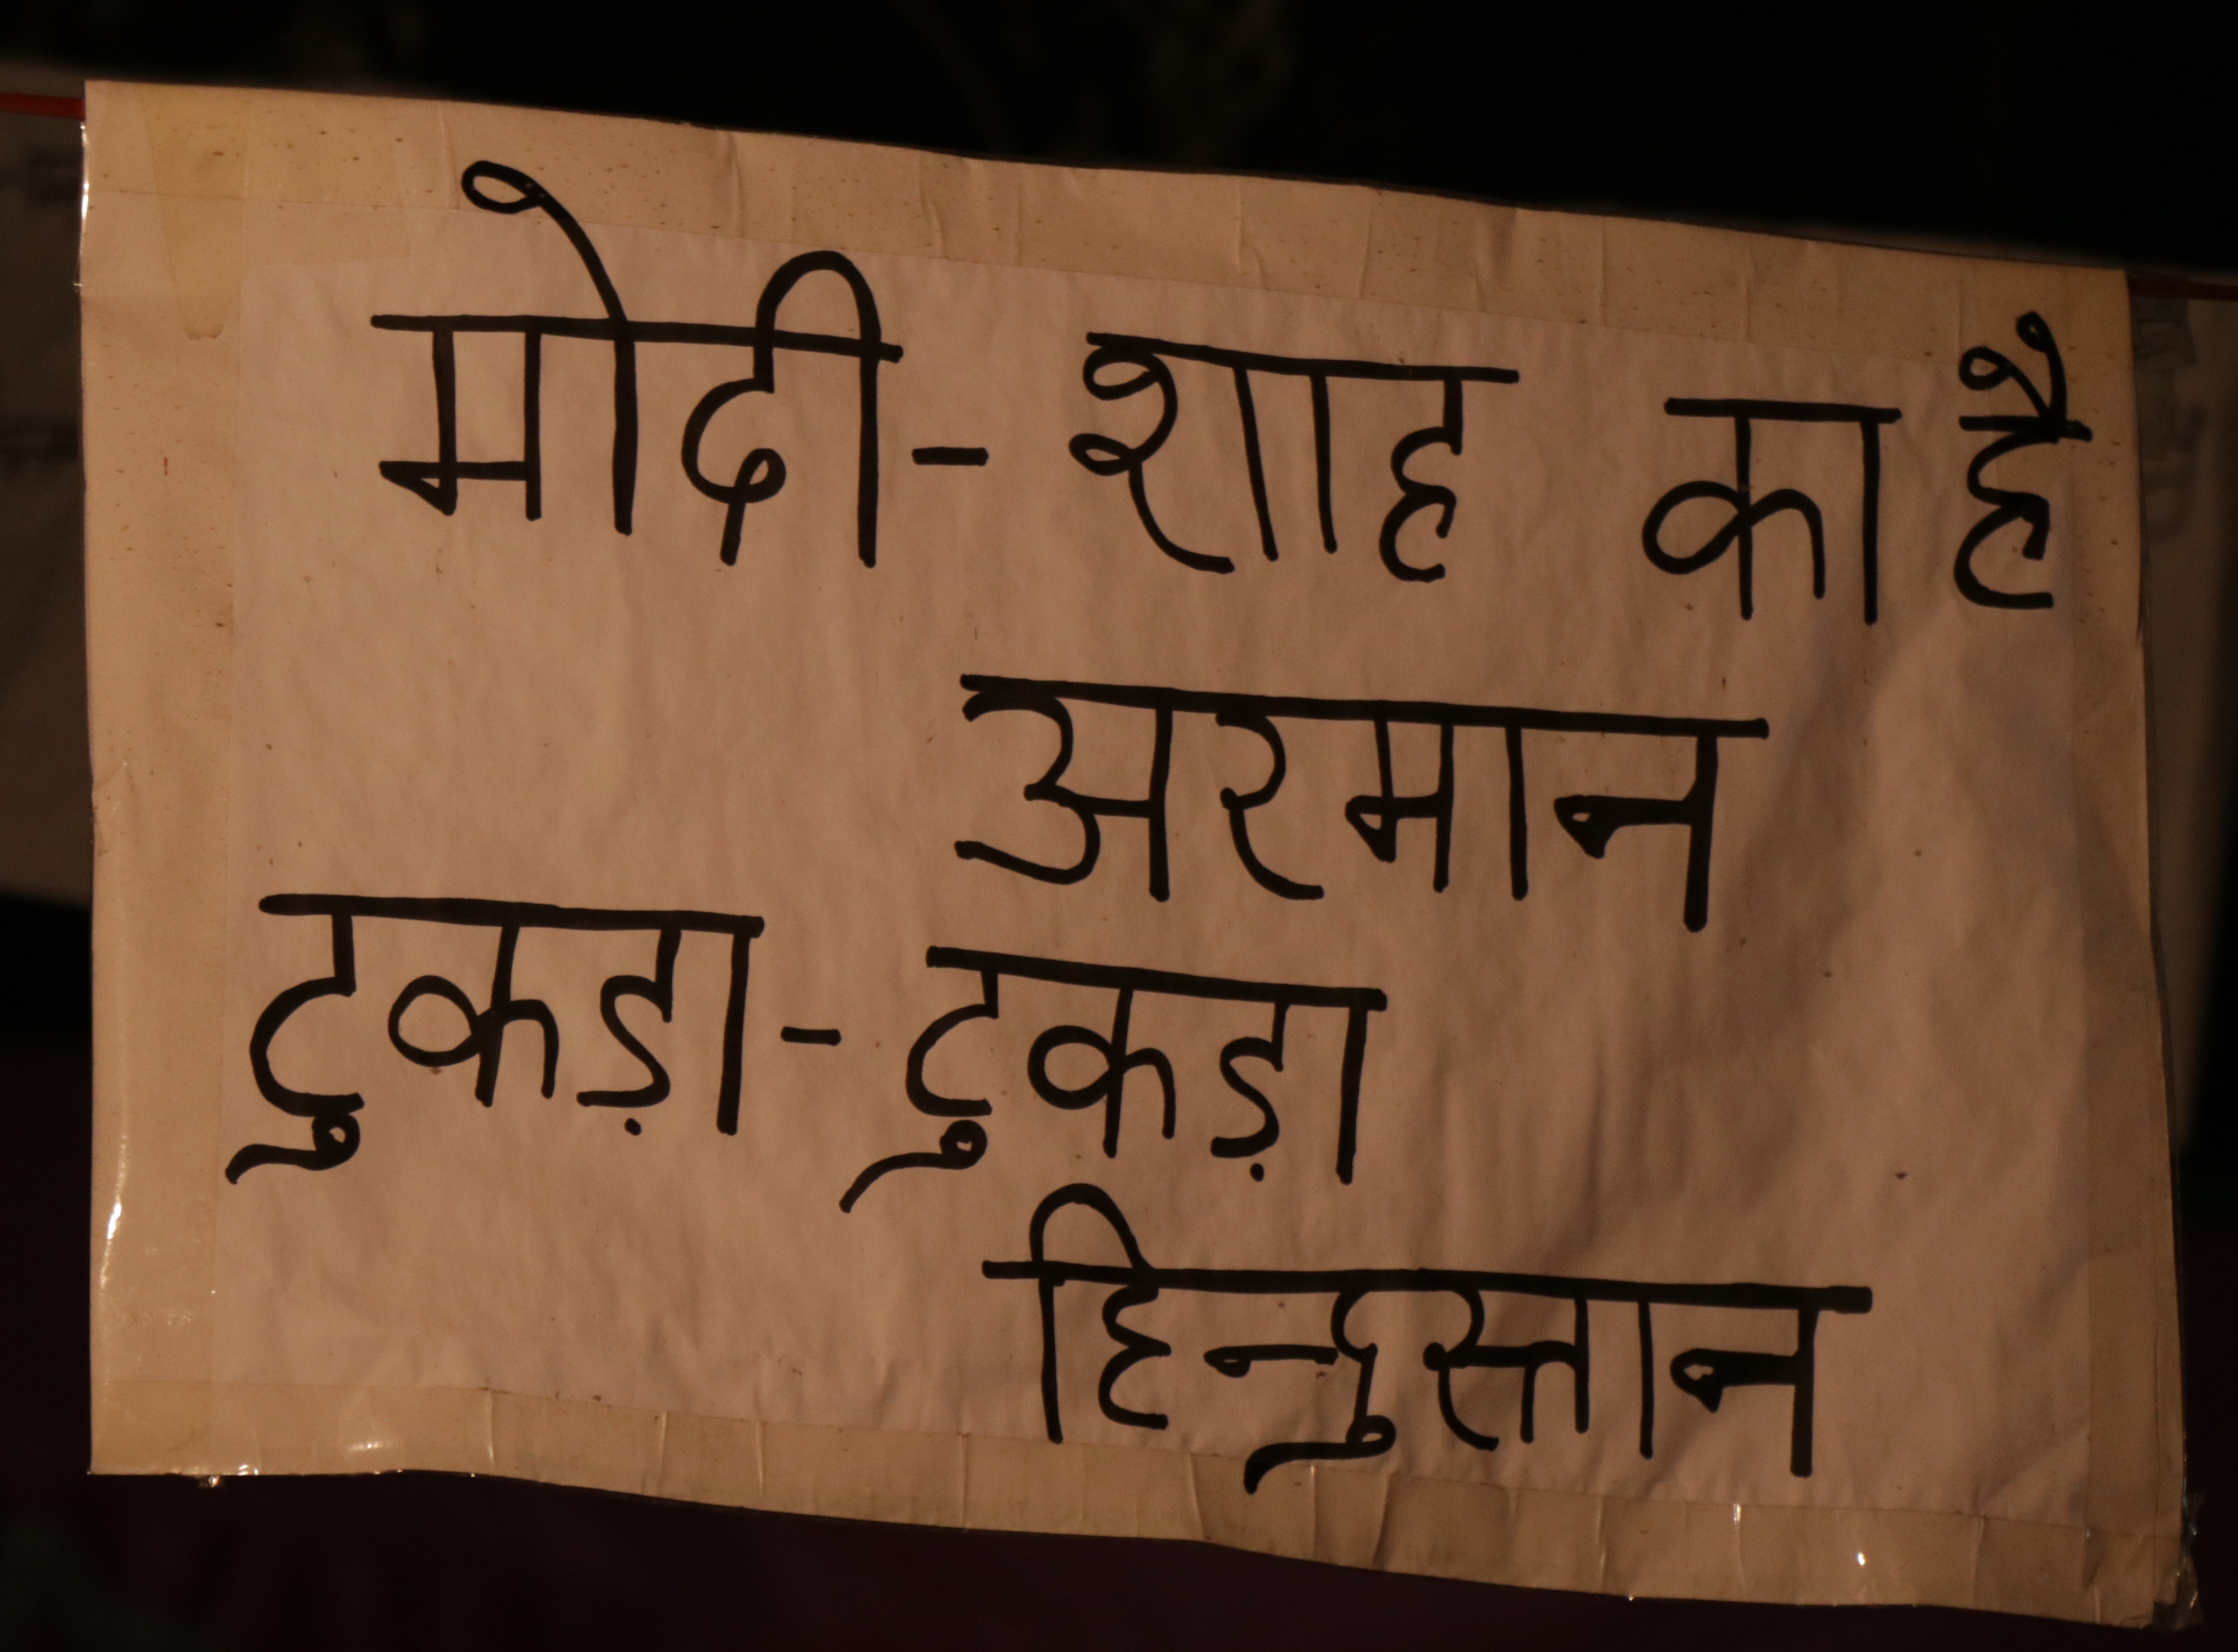 मोदी- शाह का है
अरमान
टुकड़ा- टुकड़ा
हिन्दुस्तान